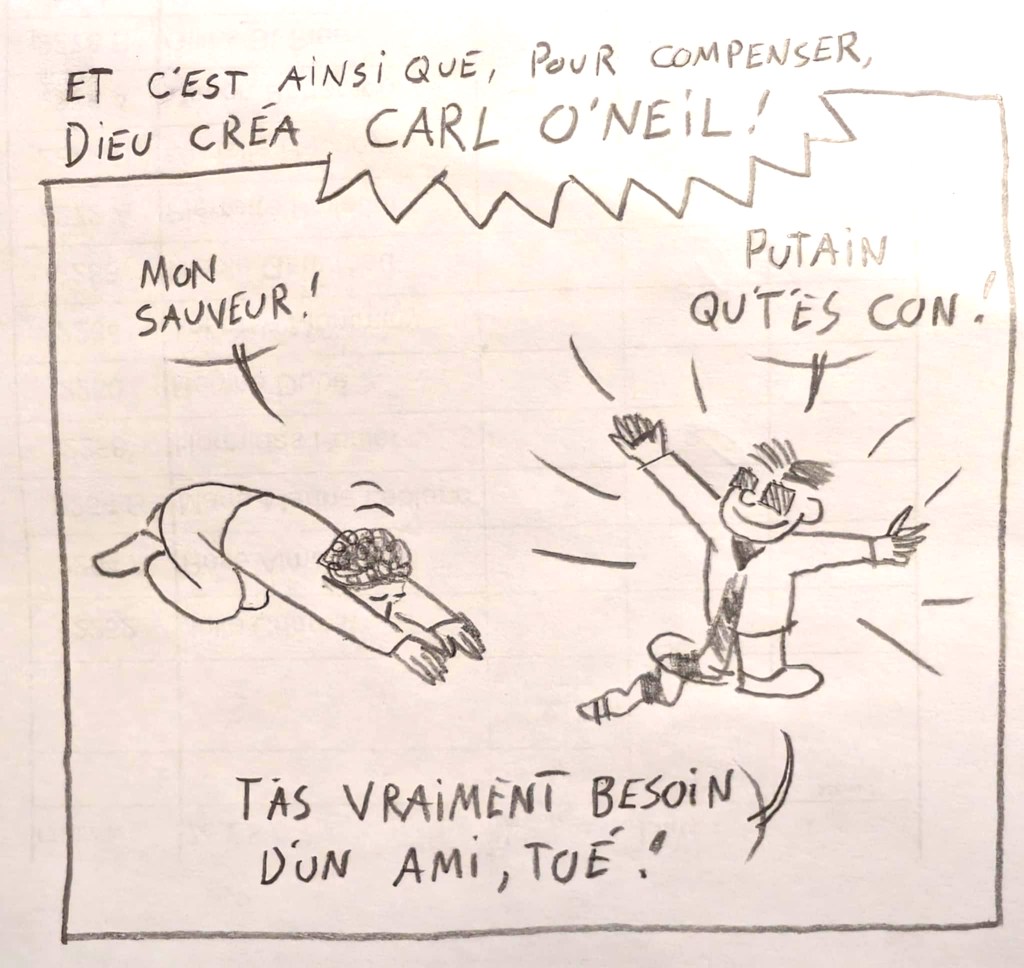 ET C'EST AINSI QUE, POUR COMPENSER,
DIEU CRÉA CARL O'NEIL!
MON
SAUVEUR!
PUTAIN
QU'T'ES CON!
T'AS VRAIMENT BESOIN
D'UN AMI, TOÉ!